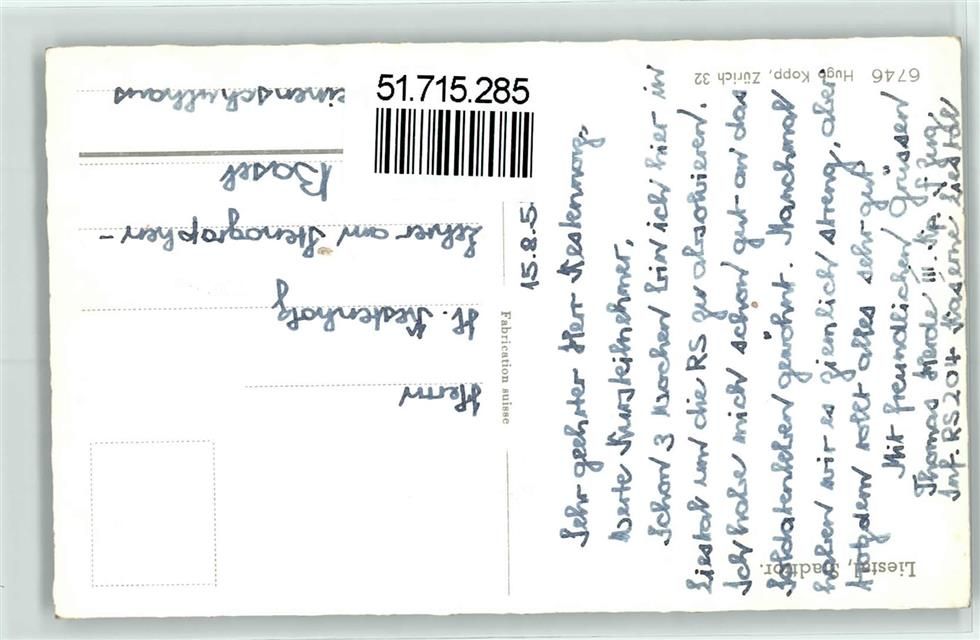 Liestal, Stadttor.
6746 Hugo Kopp, Zürich 32
Fabrication suisse
51.715.285
Herrn
H. Kestenholz
Lehrer am Stenographen-
Basel
15.8.5
Sehr geehrter Herr
Werte Kursteilnehmer,
Schon 3 Wochen bin ich hier in
Liestal um die RS zu absolvieren.
Ich habe mich schon gut an das
Soldatenleben gewöhnt. Manchmal
haben wir es ziemlich streng, aber
trotzdem rollt alles sehr gut
Mit freundlichen Grüssen
Thomas
Inf. RS 204 Kasern Liestal